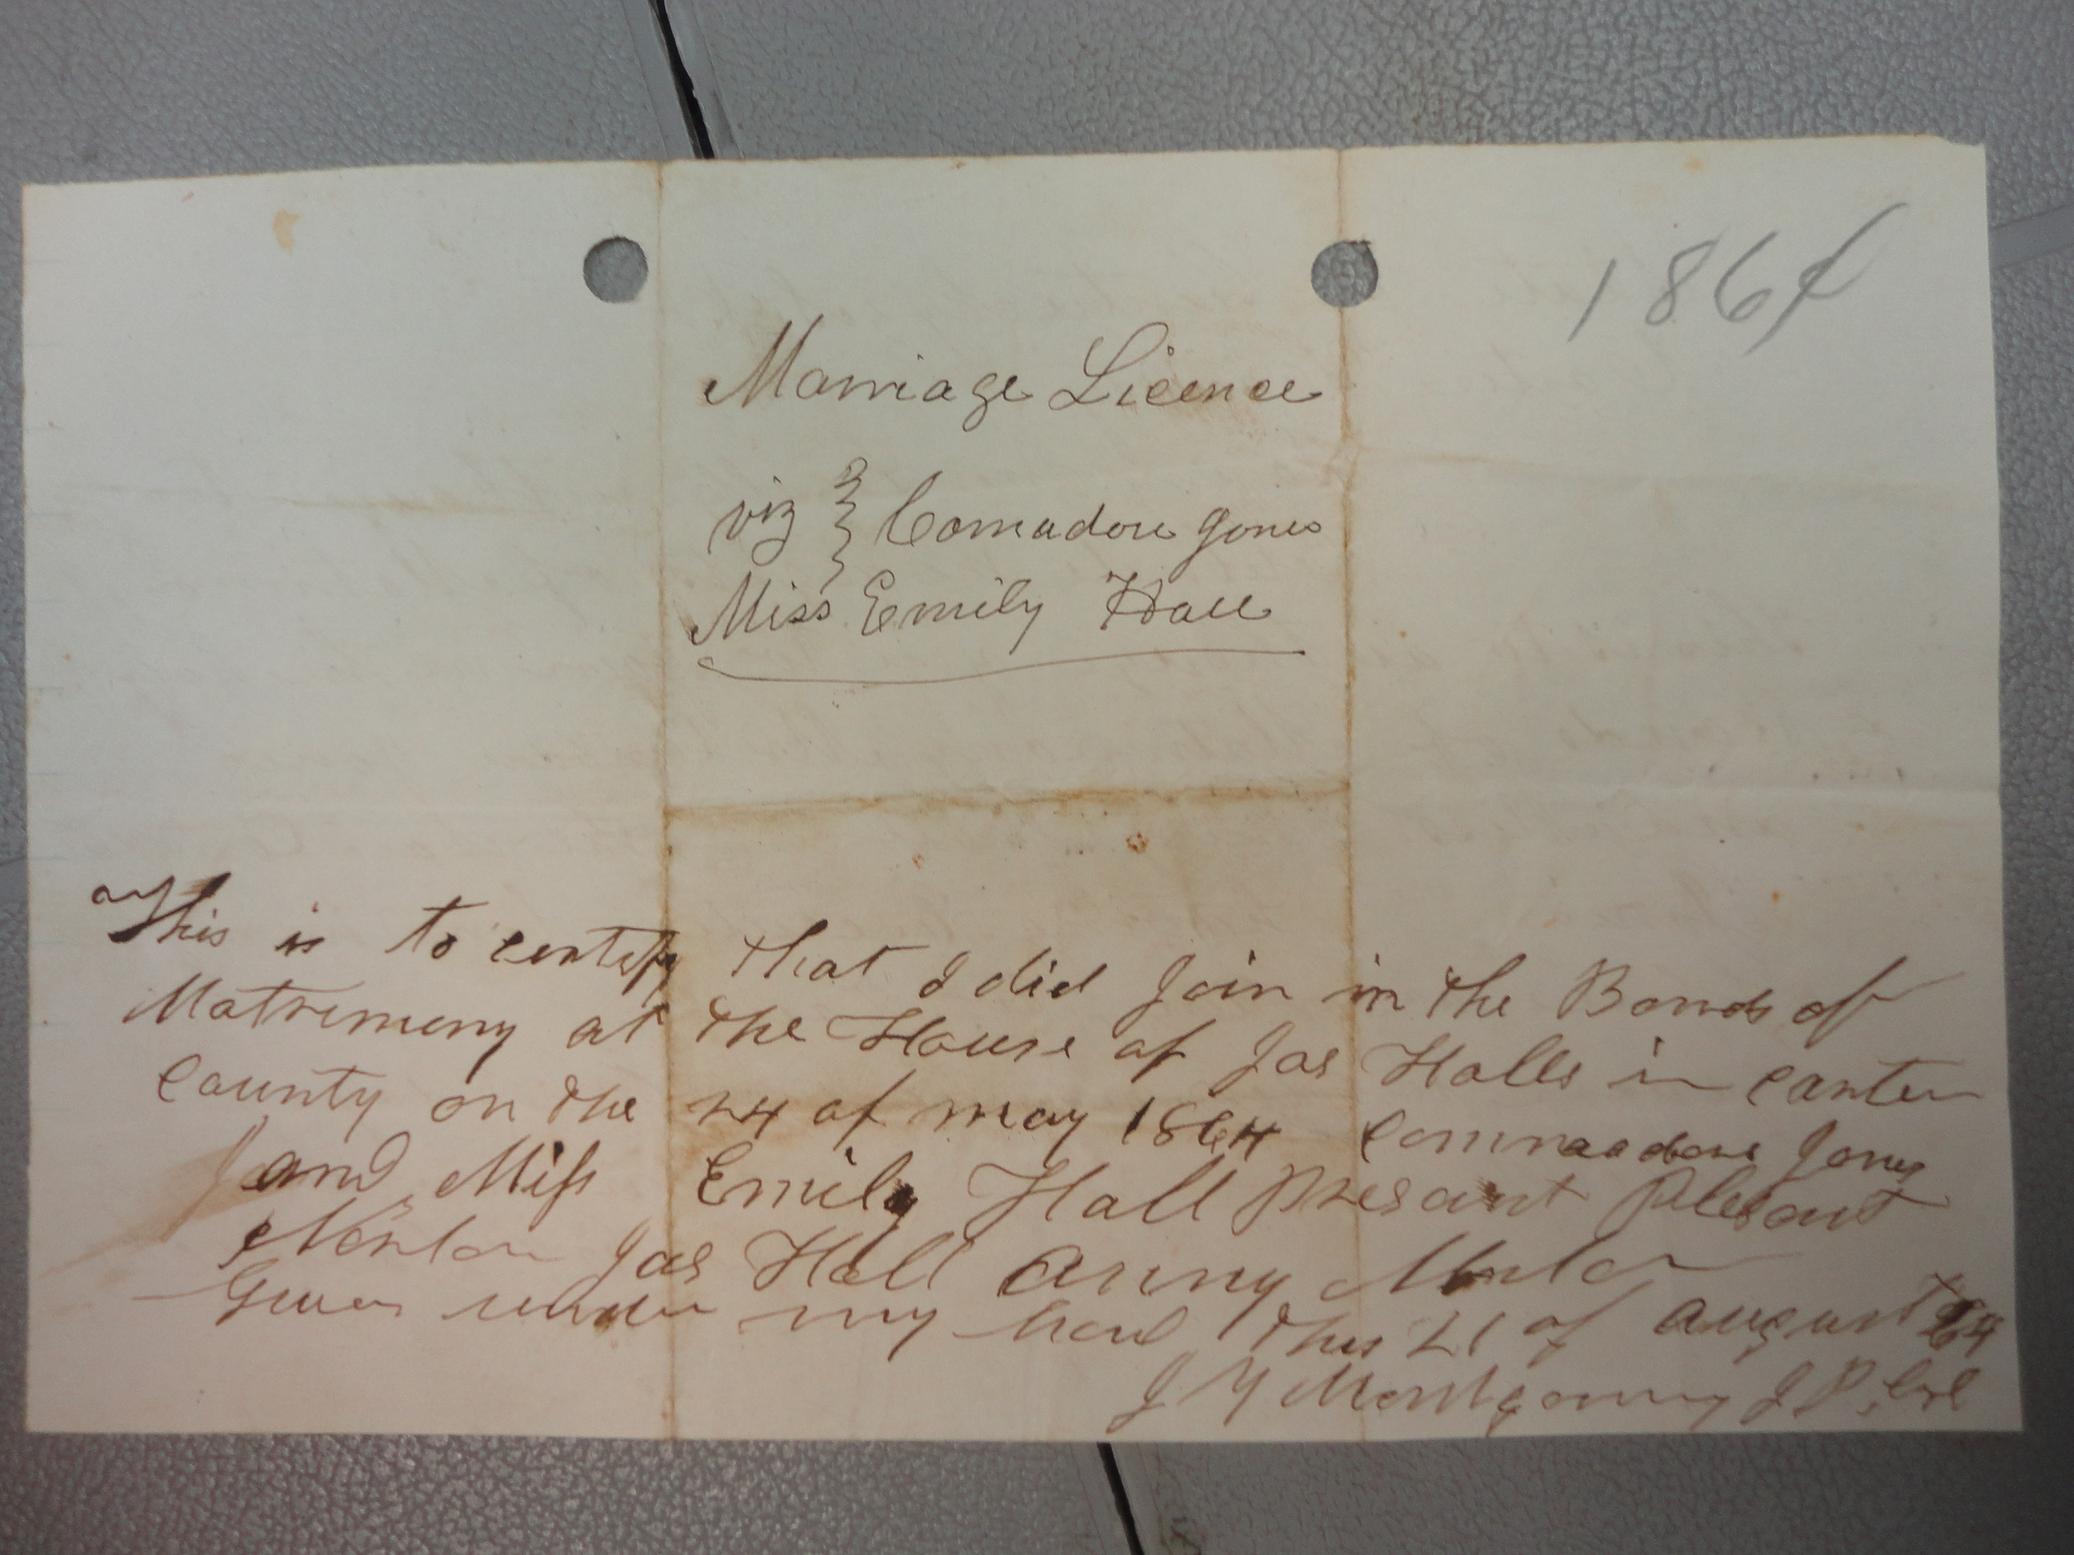 1864
Marriage Licence
viz Comadore Jones
Miss Emily Hall
This is to certify that I did Join in the Bonds of
Matrimony at the House of Jas Halls in Carter
County on the 24 of may 1864 Commadore Jones
and Miss Emily Hall Presant Plesant
Jas Hall Anny
Given under my hand this 21 of august 64
J Y Montgomery J P